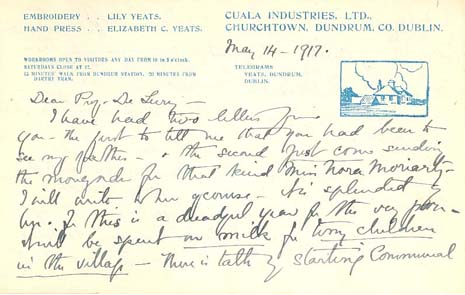 EMBROIDERY . . LILY YEATS.
HAND PRESS . . ELIZABETH C. YEATS.
CUALA INDUSTRIES, LTD.,
CHURCHTOWN, DUNDRUM, CO. DUBLIN.
WORKROOMS OPEN TO VISITORS ANY DAY FROM 10 to 5 o'clock.
SATURDAYS CLOSE AT 12.
MINUTES' WALK FROM DUNDRUM STATION, 20 MINUTES FROM
DARTRY TRAM.
May 14 - 1917.
TELEGRAMS
YEATS, DUNDRUM,
DUBLIN.
Dear Prof. De Lury -
I have had two letters from
you - the first to tell me that you had been to
see my father - & the second just come sending
the money order for that kind Miss Nora Moriarty -
I will write to her of course - it is splendid of
her. for this is a dreadful year for the very poor -
it will be spent on milk for tiny children
in the village - There is talk of starting Communal